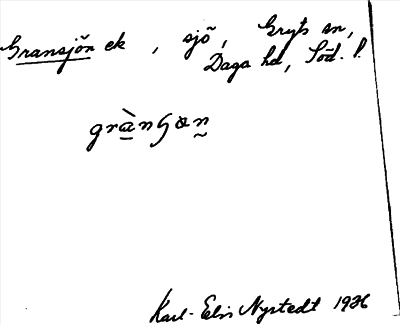 Gransjön ek, sjö, Gryts sn,
Daga hd, Söd. l.
grànʃɷn
Karl-Elis Nystedt 1936